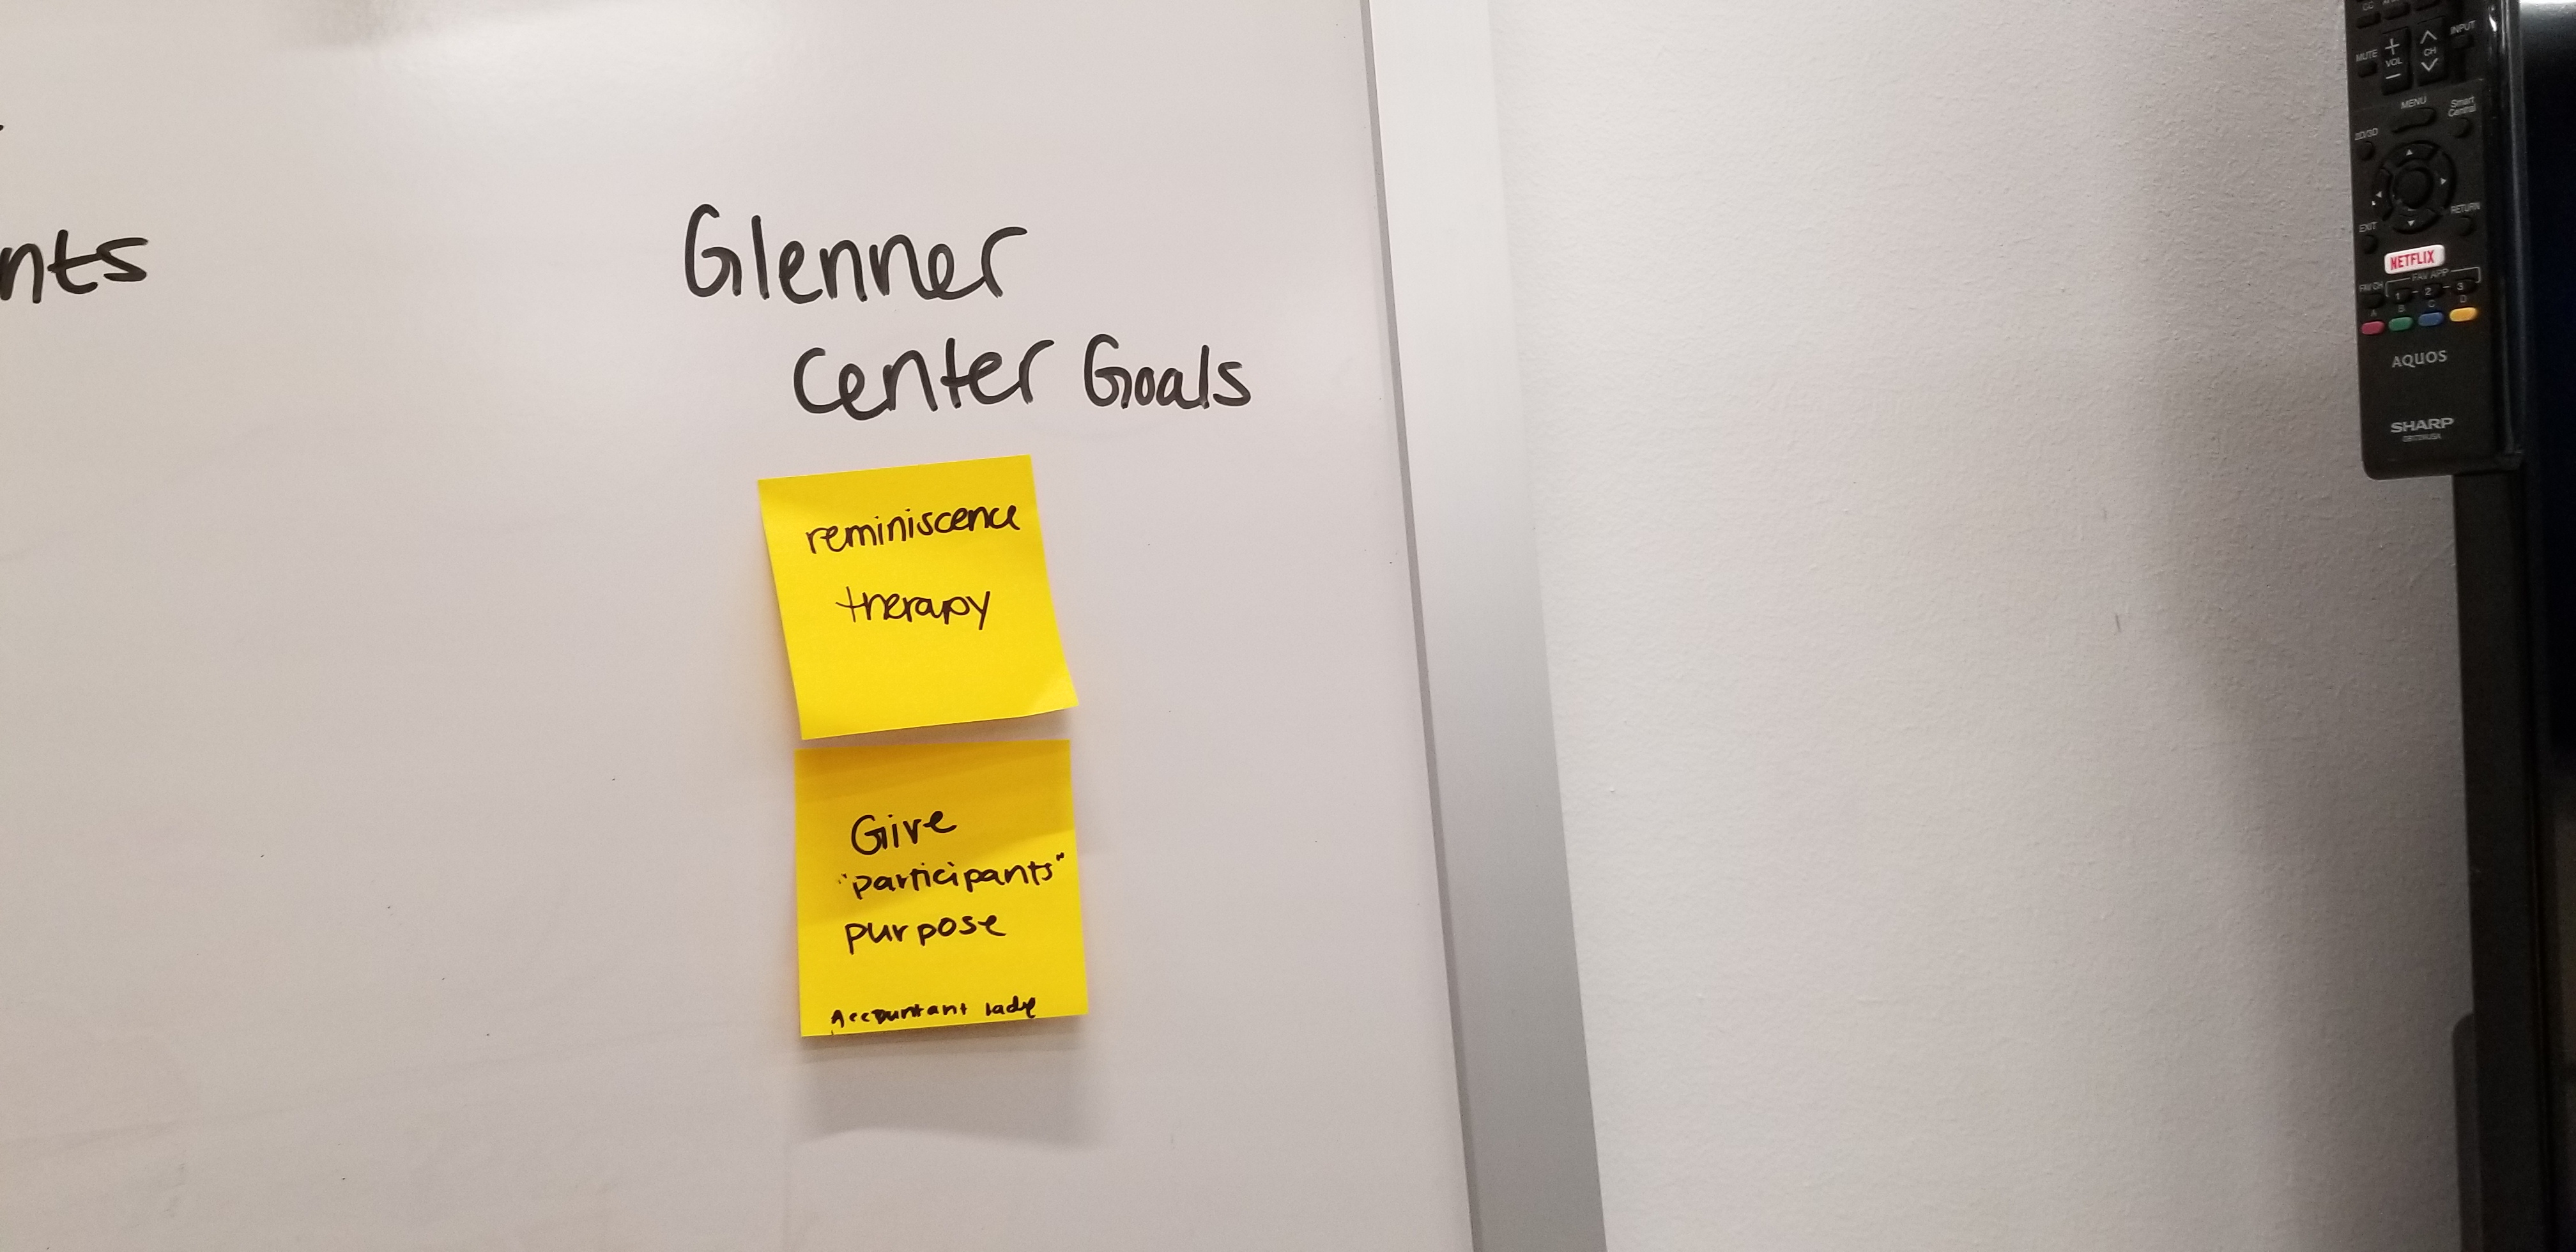 nts
Glenner
Center Goals
reminiscence
therapy
Give
"participants"
purpose
Accountant lady
CC
MUTE
+
VOL
−
CH
INPUT
MENU
Smart
Central
2D/3D
EXIT
RETURN
NETFLIX
FAV APP
FAV CH
1
2
3
A
B
C
D
AQUOS
SHARP